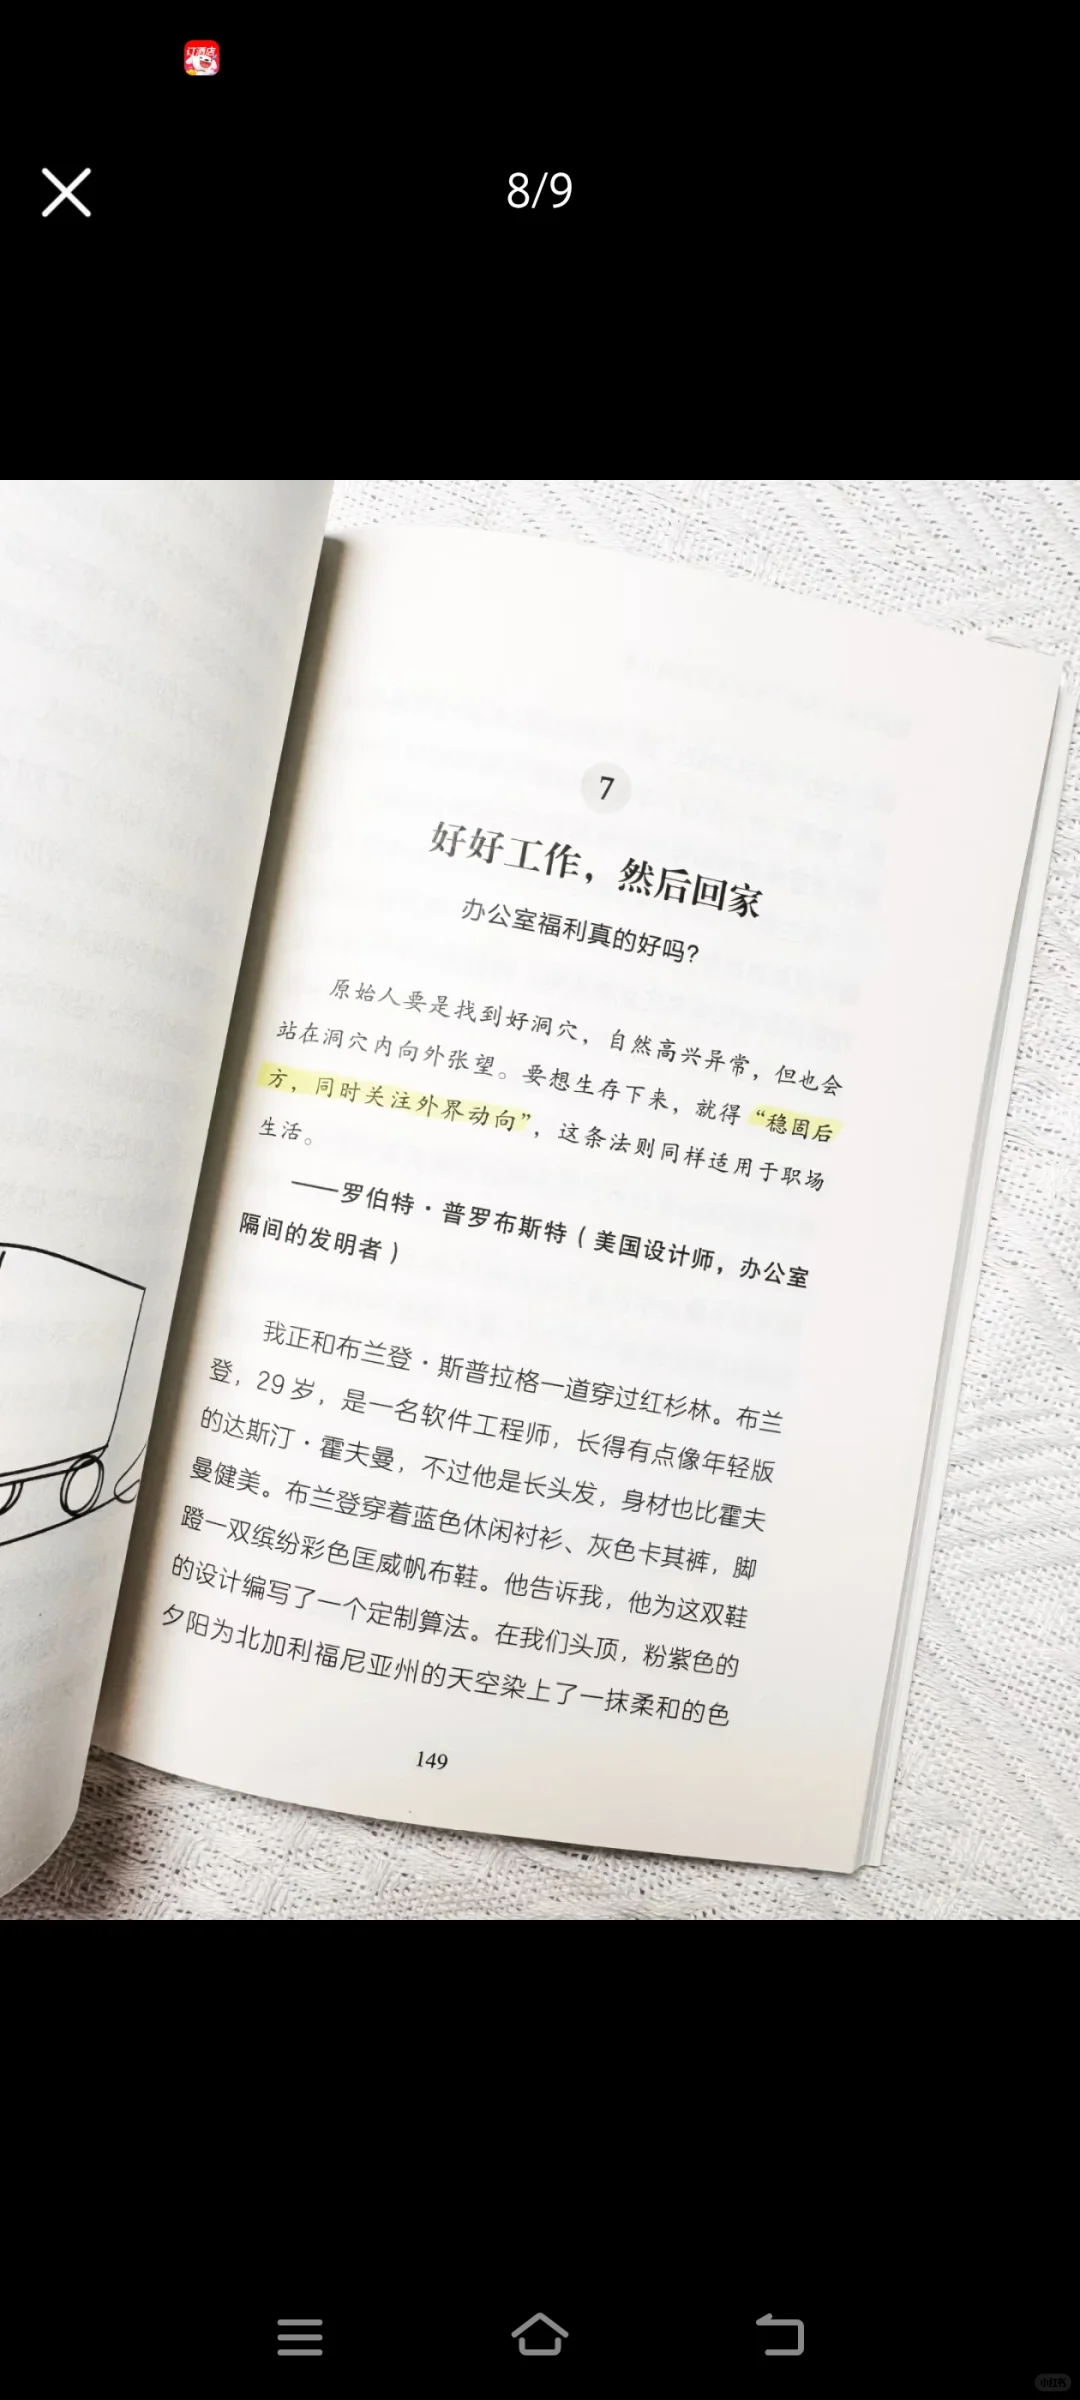 订酒店
8/9
7
好好工作，然后回家
办公室福利真的好吗？
原始人要是找到好洞穴，自然高兴异常，但也会
站在洞穴内向外张望。要想生存下来，就得“稳固后
方，同时关注外界动向”，这条法则同样适用于职场
生活。
——罗伯特·普罗布斯特（美国设计师，办公室
隔间的发明者）
我正和布兰登·斯普拉格一道穿过红杉林。布兰
登，29岁，是一名软件工程师，长得有点像年轻版
的达斯汀·霍夫曼，不过他是长头发，身材也比霍夫
曼健美。布兰登穿着蓝色休闲衬衫、灰色卡其裤，脚
蹬一双缤纷彩色匡威帆布鞋。他告诉我，他为这双鞋
的设计编写了一个定制算法。在我们头顶，粉紫色的
夕阳为北加利福尼亚州的天空染上了一抹柔和的色
149
小红书